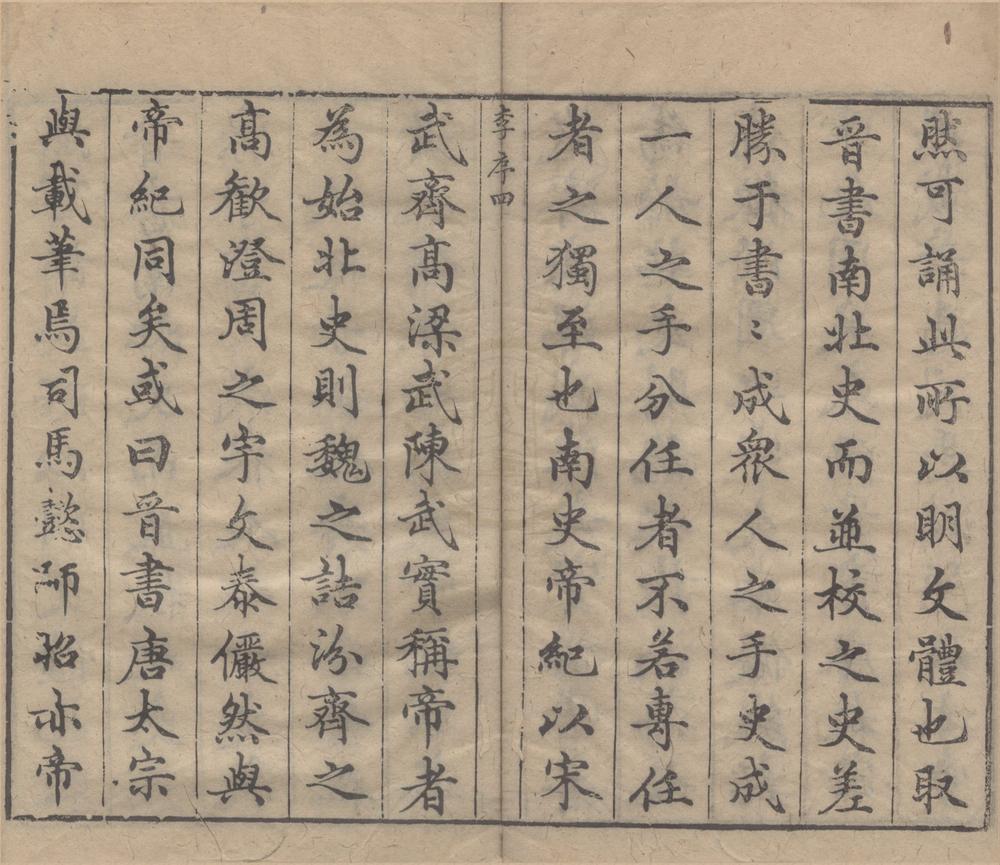 然可誦此所以明文體也取
晉書南北史而並校之史差
勝于書〻成衆人之手史成
一人之手分任者不若專任
者之獨至也南史帝紀以宋
李序四
武齊高梁武陳武實稱帝者
為始北史則魏之詰汾齊之
高歡澄周之宇文泰儼然與
帝紀同矣或曰晉書唐太宗
與載筆焉司馬懿師昭亦帝